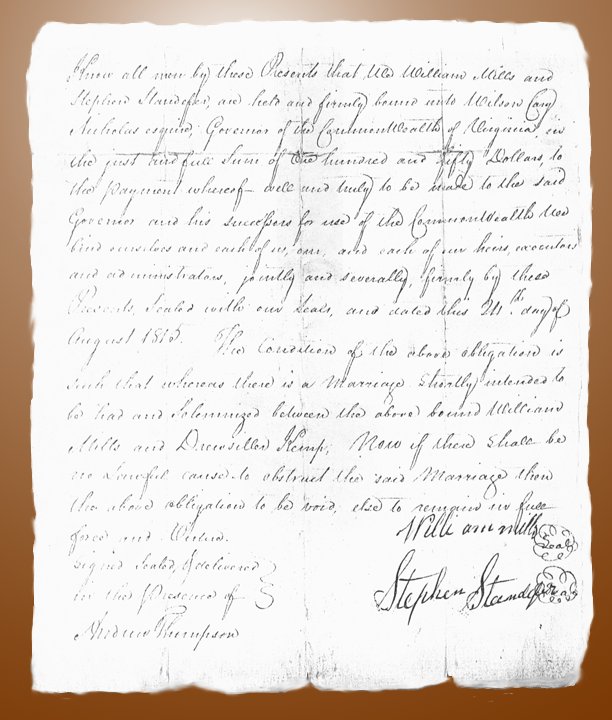 Know all men by these Presents that, We William Mills and
Stephen Standefer, are held and firmly bound unto Wilson Cary
Nicholas esquire, Governor of the CommonWealth of Virginia, in
the just and full Sum of One hundred and fifty Dollars, to
the payment whereof - well and truly to be made to the said
Governor and his successors for use of the CommonWealth We
bind ourselves and each of us, our, and each of our heirs, executors
and administrators, jointly and severally, firmly by these
Presents. Sealed with our Seals, and dated this 24th day of
August 1815. The Condition of the above obligation is
such that whereas there is a Marriage Shortly intended to
be had and Solemnized between the above bound William
Mills and Drewsiller Kemp, Now if there Shall be
no Lawful cause to obstruct the said Marriage then
the above obligation to be void, else to remain in full
force and Virtue.
William mills Seal
Signed Sealed, & delivered
in the presence of
Stephen Standefer Seal
Andrew Thompson